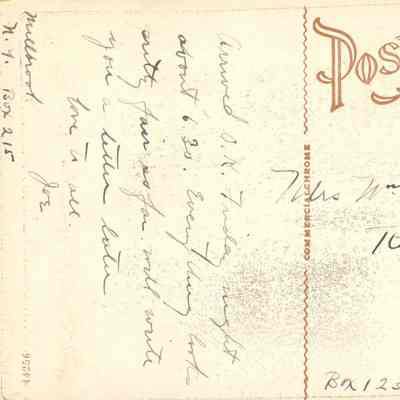 Arrived O.K. Friday night
about 6.30. Everything looks
pretty fair so far. will write
you a letter later
love to all.
Joe
Millwood
N.Y. Box 215
POS
COMMERCIALCHROME
Mrs Wm
Box 123